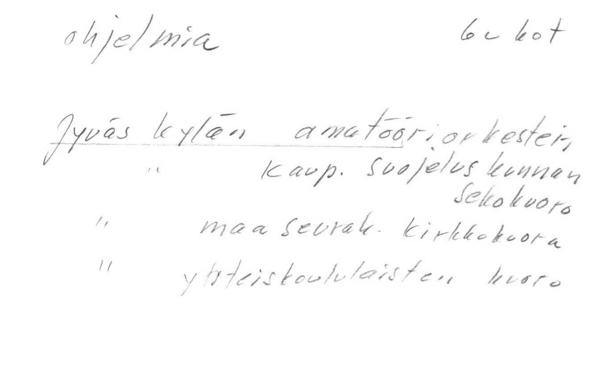 ohjelmia 6c kot
Jyväskylän amatööriorkesteri,
" kaup. suojeluskunnan
sekakuoro
" maaseurak. kirkkokuoro
" yhteiskoululaisten kuoro